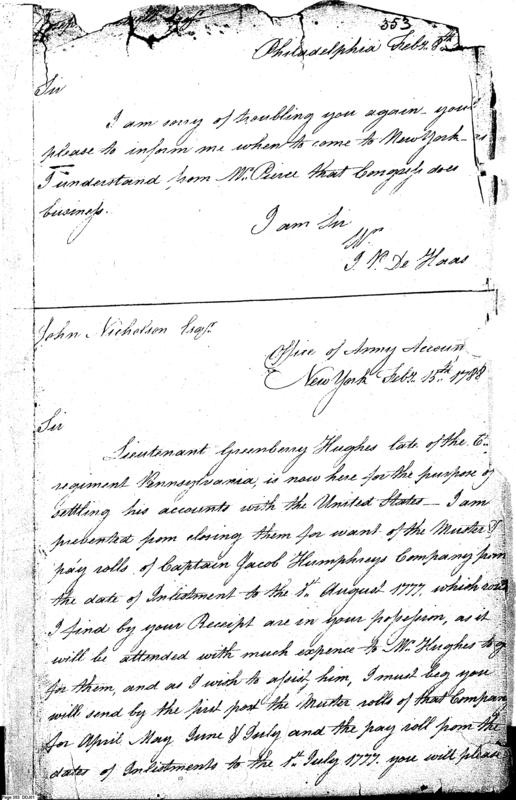 353
Philadelphia Feb.y 8th
Sir
I am sorry of troubling you again - you'l
please to inform me when to come to New York -
I understand from Mr. Pierce that Congress does
business.
I am Sir
J. P. De Haas
John Nicholson Esqr.
Office of Army Account
New York Feb.y 15th 1788
Sir
Lieutenant Greenberry Hughes late of the 6.
regiment Pennsylvania, is now here for the purpose of
settling his accounts with the United States - I am
prevented from closing them for want of the Muster &
pay rolls of Captain Jacob Humphreys Company from
the date of Inlistment to the 1st August 1777. which
I find by your Receipt are in your possession, as it
will be attended with much expence to Mr. Hughes to
for them, and as I wish to assist him, I must beg you
will send by the first post the Muster rolls of that Compan
for April May June & July and the pay roll from the
dates of Inlistments to the 1st July 1777. you will please
Page 353